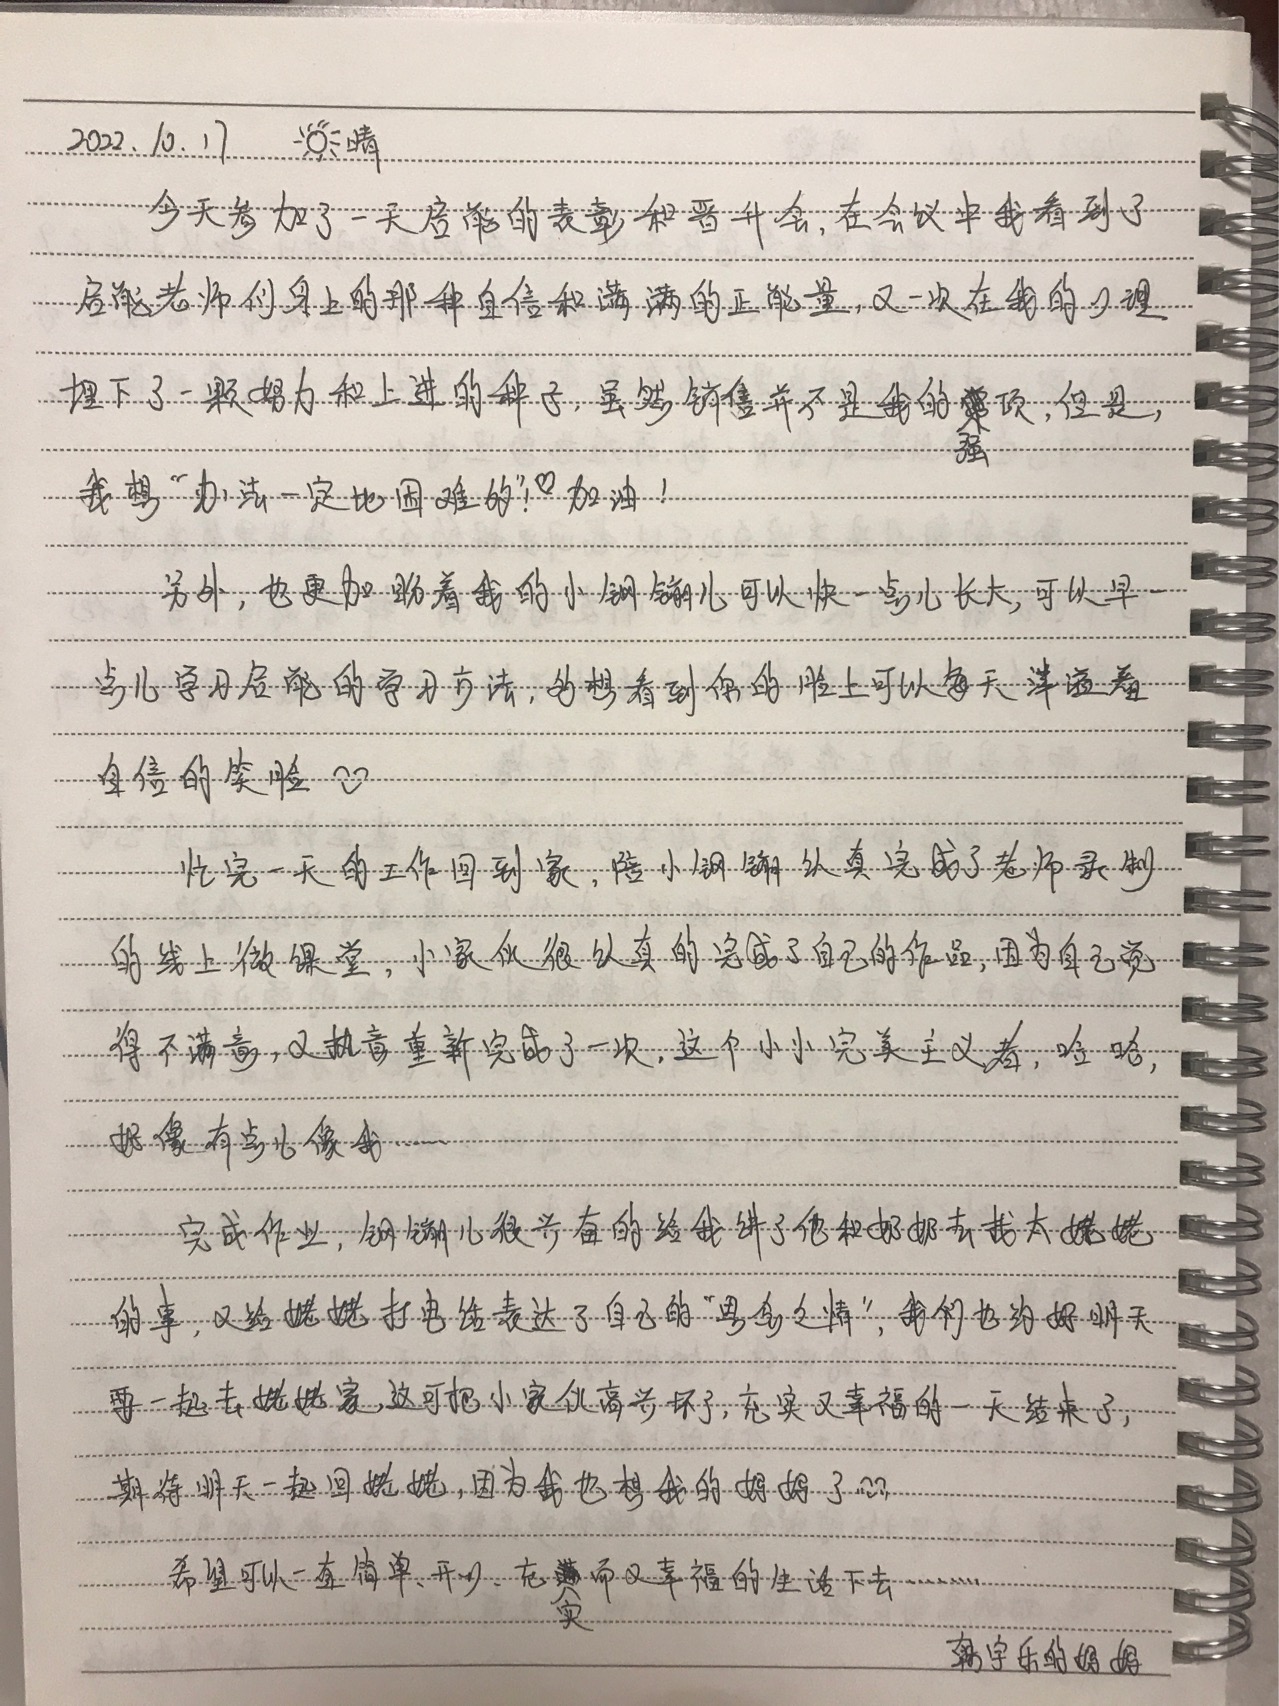 2022.10.17 晴
今天参加了一天启能的表彰和晋升会,在会议中我看到了
启能老师们身上的那种自信和满满的正能量,又一次在我的心理
埋下了一颗努力和上进的种子,虽然销售并不是我的强项,但是,
我想“办法一定比困难的”!♡加油!
另外,也更加盼着我的小钢镚儿可以快一点儿长大,可以早一
点儿学习启能的学习方法,的想看到你的脸上可以每天洋溢着
自信的笑脸
忙完一天的工作回到家,陪小钢镚认真完成了老师录制
的线上微课堂,小家伙很认真的完成了自己的作品,因为自己觉
得不满意,又执意重新完成了一次,这个小小完美主义者,哈哈,
好像有点儿像我……
完成作业,钢镚儿很兴奋的给我讲了他和奶奶去找太姥姥
的事,又给姥姥打电话表达了自己的“思念之情”,我们也约好明天
要一起去姥姥家,这可把小家伙高兴坏了,充实又幸福的一天结束了,
期待明天一起回姥姥,因为我也想我的妈妈了
希望可以一直简单、开心、充实而又幸福的生活下去……
韩宇乐的妈妈